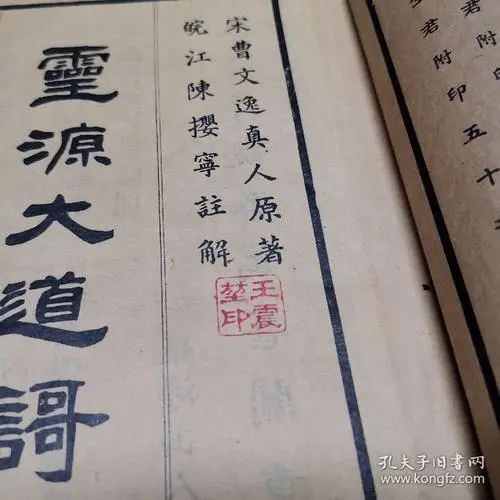 君附印
君附印五十
宋曹文逸真人原著
皖江陳攖寧註解
王震
印
靈源大道謌
孔夫子旧书网
www.kongfz.com